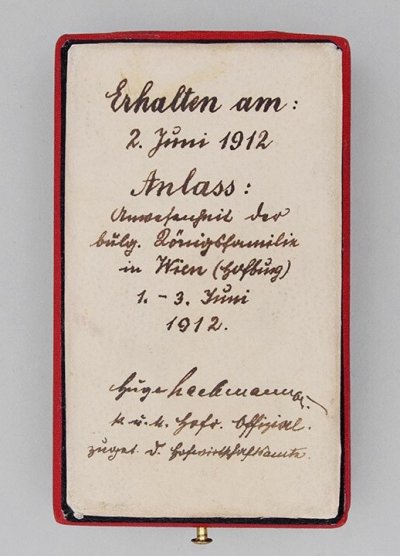 Erhalten am:
2. Juni 1912
Anlass:
Anwesenheit der
bulg. Königsfamilie
in Wien (Hofburg)
1. - 3. Juni
1912.
Hugo Hackmann
k. u. k. Hofr. Offizial.
zuget. d. Hofwirtschaftsamte.